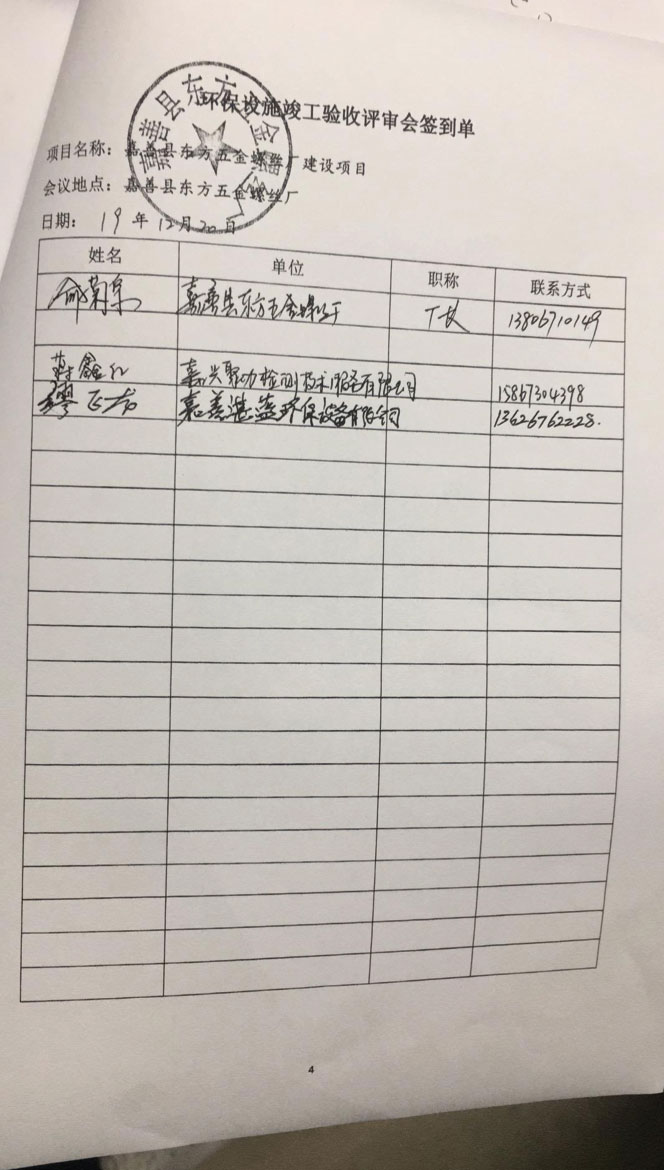 环保设施竣工验收评审会签到单
嘉善县东方五金螺丝厂
项目名称：嘉善县东方五金螺丝厂建设项目
会议地点：嘉善县东方五金螺丝厂
日期：19年12月20日
姓名 单位 职称 联系方式
俞菊泉 嘉善县东方五金螺丝厂 厂长 13806710149
鑫 嘉兴聚力检测技术服务有限公司 15867304398
廖正 嘉善湛蓝环保设备有限公司 13626762228.
4